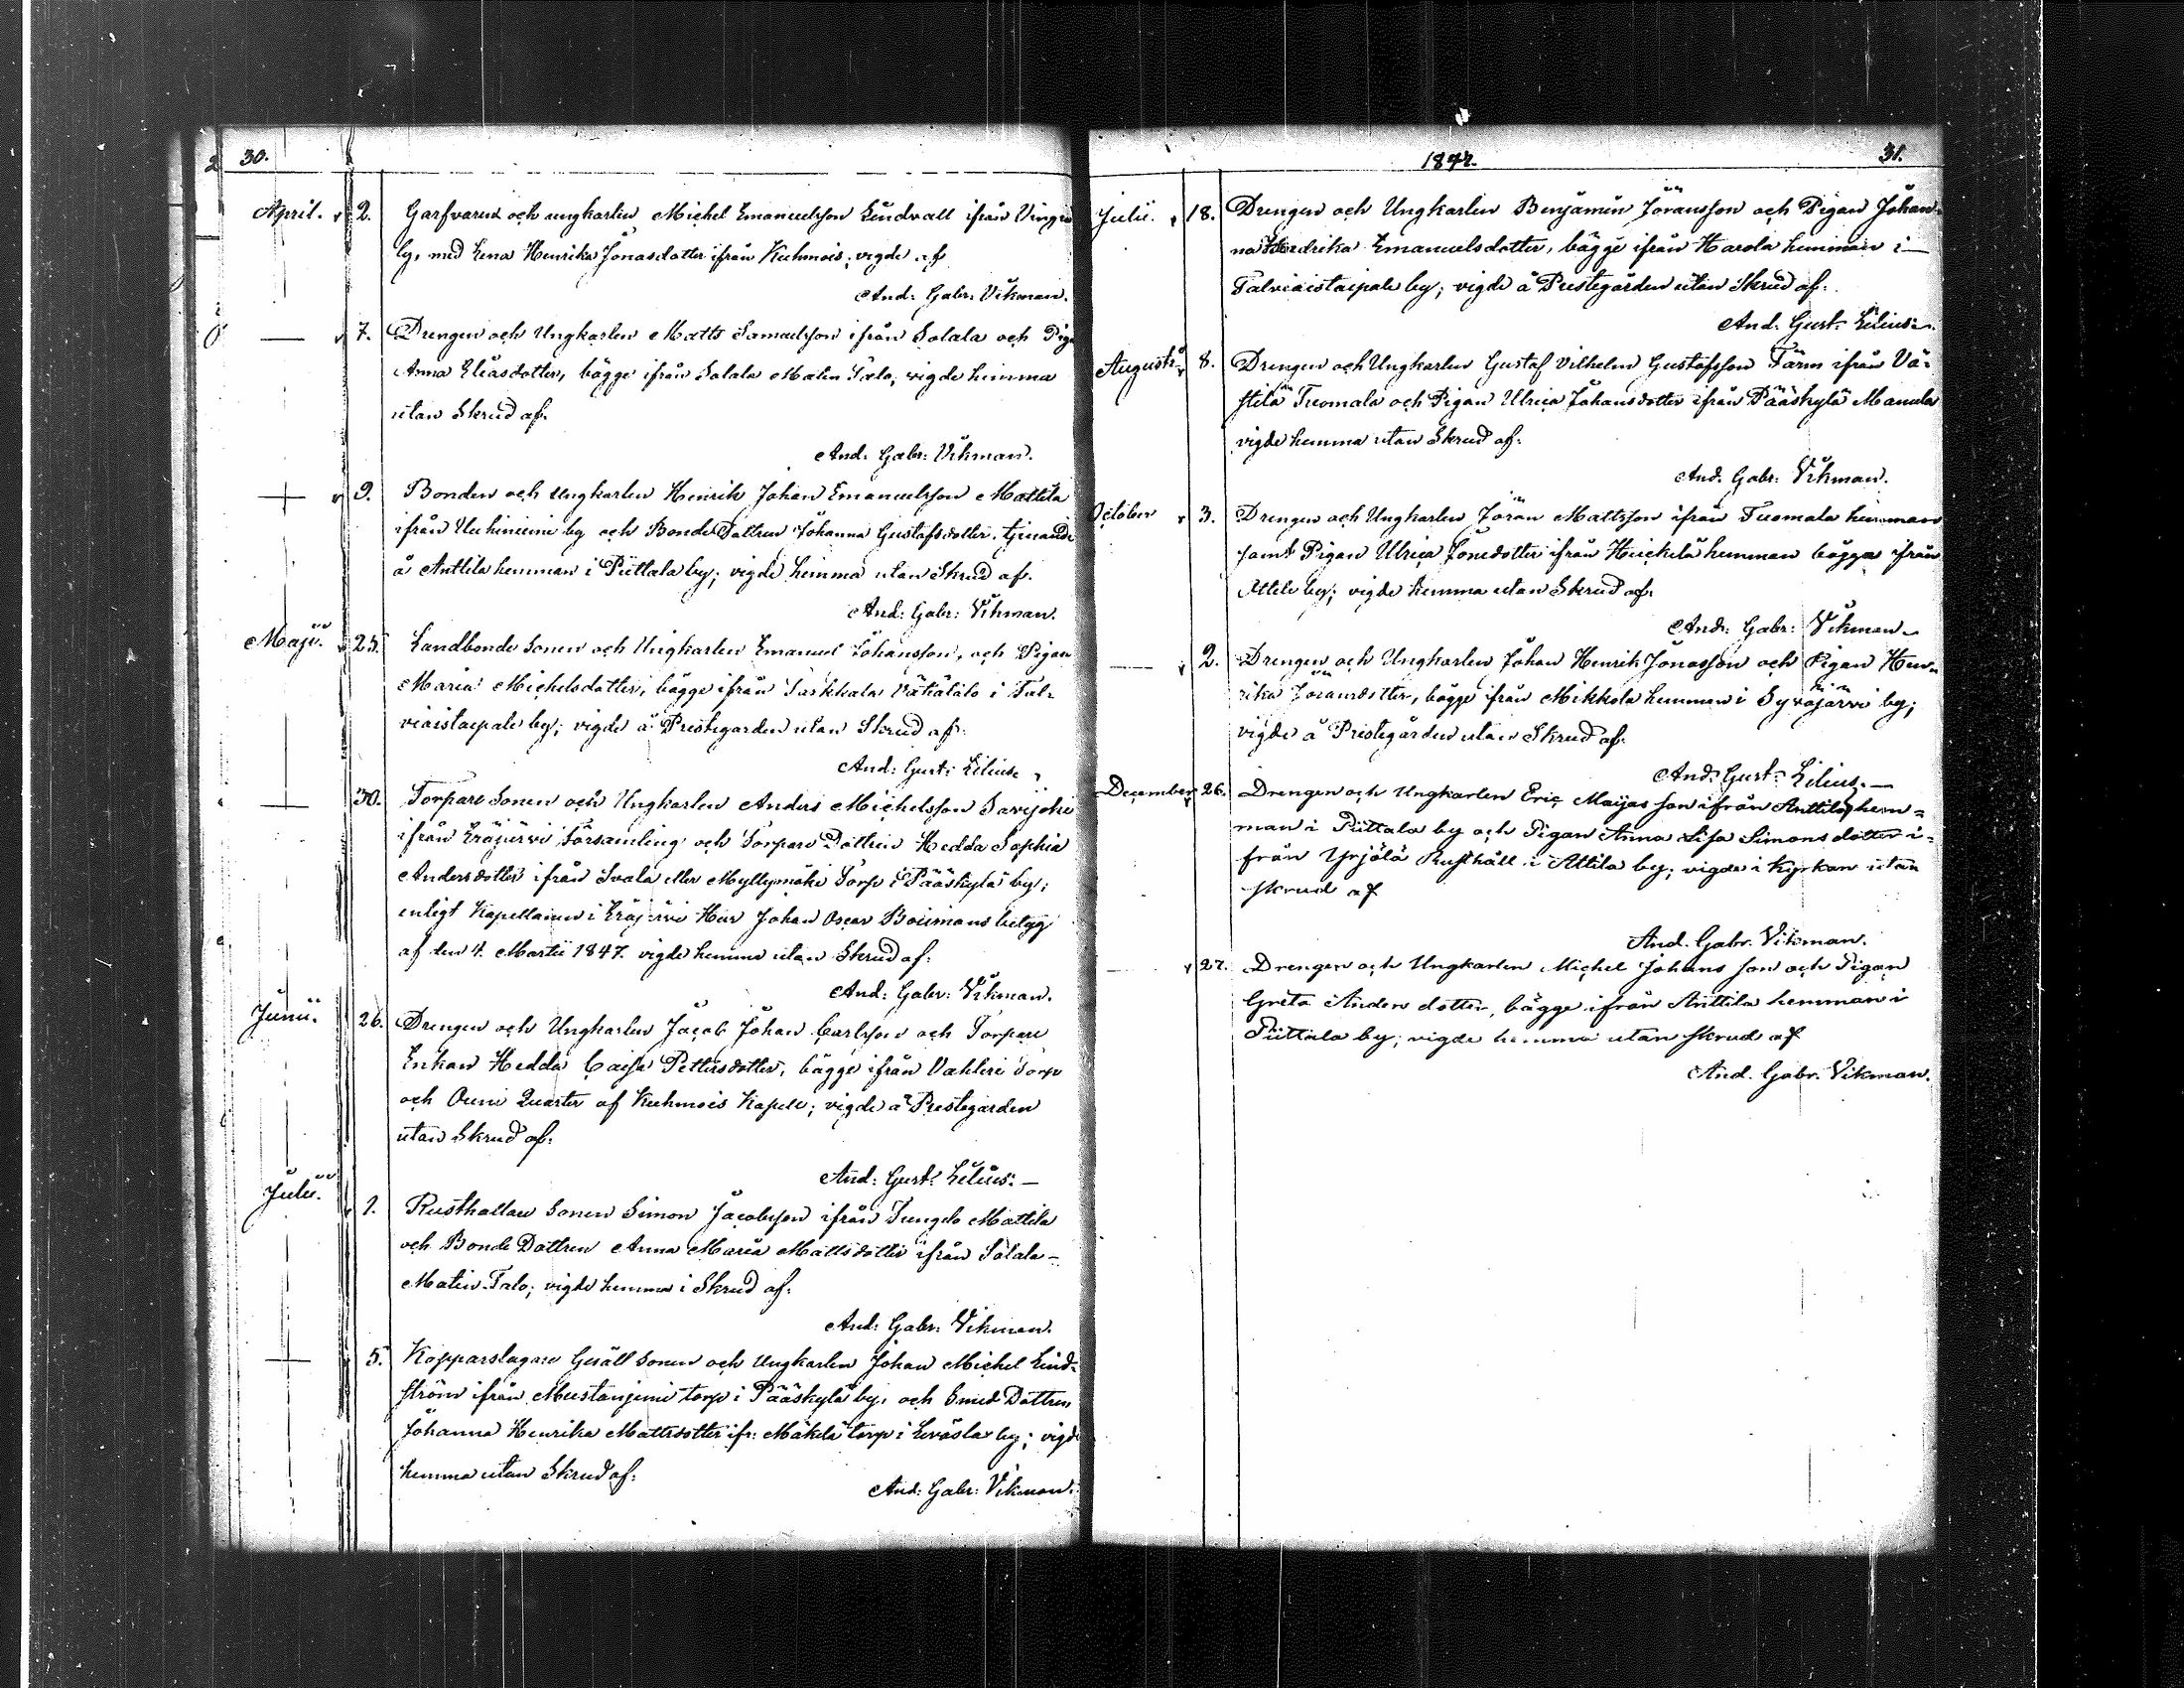 30.
April. 2. Garfvaren och ungkarlen Michel Emanuelsson Lindvall ifrån
by, med Lena Henrika Jonasdotter ifrån Kuhmois; vigde af
And: Gabr: Vikman.
— 7. Drengen och Ungkarlen Matts Samuelsson ifrån Salala och
Anna Eliasdotter, bägge ifrån Salala Matin Talo, vigde hemma
utan Skrud af.
And: Gabr: Vikman.
— 9. Bonden och Ungkarlen Henrik Johan Emanuelsson Mattila
ifrån by och Bonde Dottren Johanna Gustafsdotter, tjenande
å Anttila hemman i Piittala by; vigde hemma utan Skrud af.
And: Gabr: Vikman.
Maji. 25. Landbonde Sonen och Ungkarlen Emanuel Johansson, och Pigan
Maria Michelsdotter, bägge ifrån i Tal-
viaistaipale by; vigde å Prestegården utan Skrud af:
And: Gust: Lilius.
— 30. Torpare Sonen och Ungkarlen Anders Michelsson Savijoki
ifrån Eräjärvi Församling och Torpare Dottren Hedda Sophia
Andersdotter ifrån Svala eller Myllymäki Torp i Pääskylä by;
enligt Kapellanen i Eräjärvi Herr Johan Oscar betyg
af den 4. Martii 1847. vigde hemma utan Skrud af:
And: Gabr: Vikman.
Junii. 26. Drengen och Ungkarlen Jacob Johan Carlsson och Torpare
Enkan Hedda Caisa Pettersdotter, bägge ifrån Torp
och Quarter af Kuhmois Kapell; vigde å Prestegården
utan Skrud af:
And: Gust: Lilius: —
Julii. 1. Rusthållare Sonen Simon Jacobsson ifrån Mattila
och Bonde Dottren Anna Maria Mattsdotter ifrån Salala-
Matin-Talo; vigde hemma i Skrud af:
And: Gabr: Vikman.
— 5. Kopparslagare Gesäll Sonen och Ungkarlen Johan Michel Lind-
ström ifrån torp i Pääskylä by, och Smed Dottren
Johanna Henrika Mattsdotter ifr: Mäkelä torp i Leväsla by; vigde
hemma utan Skrud af:
And: Gabr: Vikman.
1847. 31.
Julii. 18. Drengen och Ungkarlen Benjamin Jöransson och Pigan Johan-
na Hendrika Emanuelsdotter, bägge ifrån Harola hemman i
Talviaistaipale by; vigde å Prestegården utan Skrud af:
And: Gust: Lilius.
Augusti. 8. Drengen och Ungkarlen Gustaf Vilhelm Gustafsson Färm ifrån Vä-
stilä Tuomala och Pigan Ulrica Johansdotter ifrån Pääskylä
vigde hemma utan Skrud af:
And. Gabr: Vikman.
October 3. Drengen och Ungkarlen Jöran Mattsson ifrån Tuomala hemman
samt Pigan Ulrica ifrån hemman bägge ifrån
Attila by; vigde hemma utan Skrud af:
And: Gabr: Vikman.
— 2. Drengen och Ungkarlen Johan Henrik Jonasson och Pigan Hen-
rika Jöransdotter, bägge ifrån Mikkola hemman i Syväjärvi by;
vigde å Prestegården utan Skrud af:
And: Gust: Lilius. —
December 26. Drengen och Ungkarlen Eric Maijas son ifrån Anttila hem-
man i Piittala by och Pigan Anna Lisa Simons dotter i-
från Yrjölä Rusthåll i Attila by; vigde i Kyrkan utan
skrud af
And. Gabr. Vikman.
— 27. Drengen och Ungkarlen Michel Johans son och Pigan
Greta Anders dotter, bägge ifrån Anttila hemman i
Piittala by; vigde hemma utan skrud af
And. Gabr. Vikman.